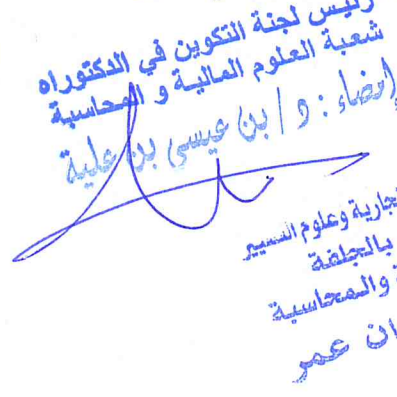 رئيس لجنة التكوين في الدكتوراه
شعبة العلوم المالية و المحاسبة
إمضاء : د / بن عيسى بن علية
تجارية وعلوم التسيير
بالجلفة
والمحاسبة
ان عمر